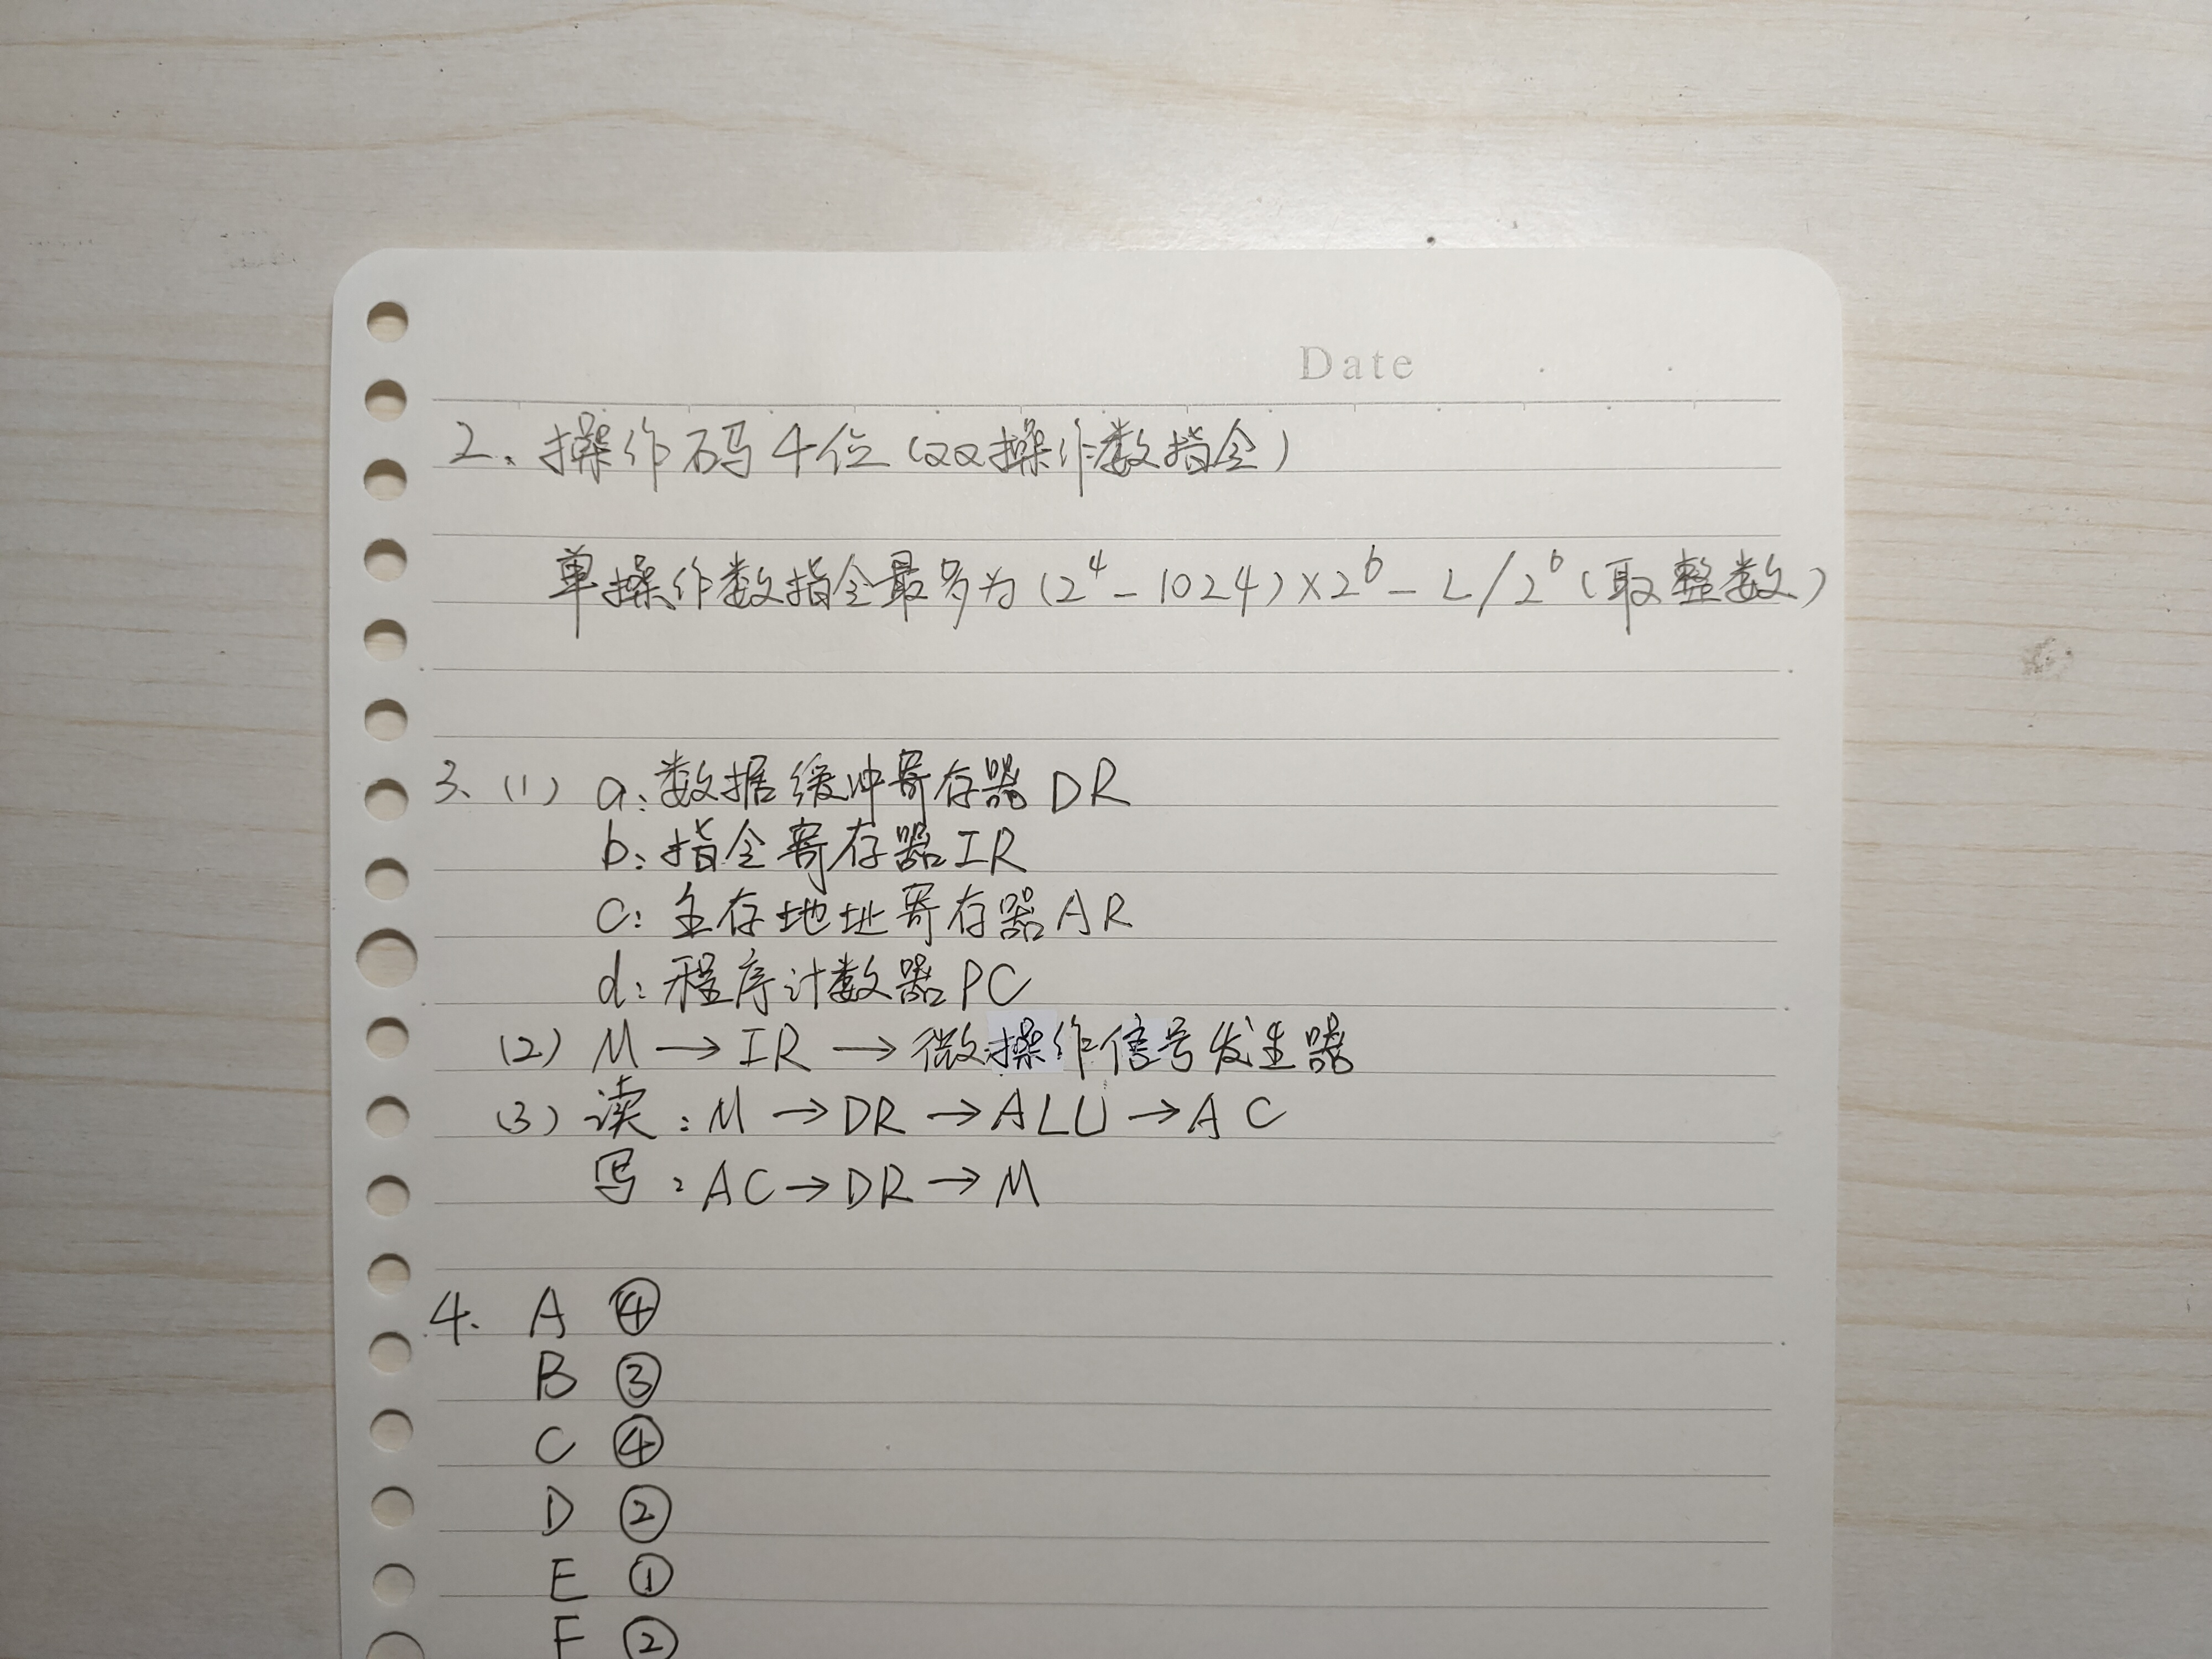 Date
2、操作码4位(双操作数指令)
单操作数指令最多为(2⁴-1024)×2⁶-L/2⁶(取整数)
3、(1) a:数据缓冲寄存器DR
b:指令寄存器IR
c:主存地址寄存器AR
d:程序计数器PC
(2) M→IR→微操作信号发生器
(3) 读:M→DR→ALU→AC
写:AC→DR→M
4. A ④
B ③
C ④
D ②
E ①
F ②